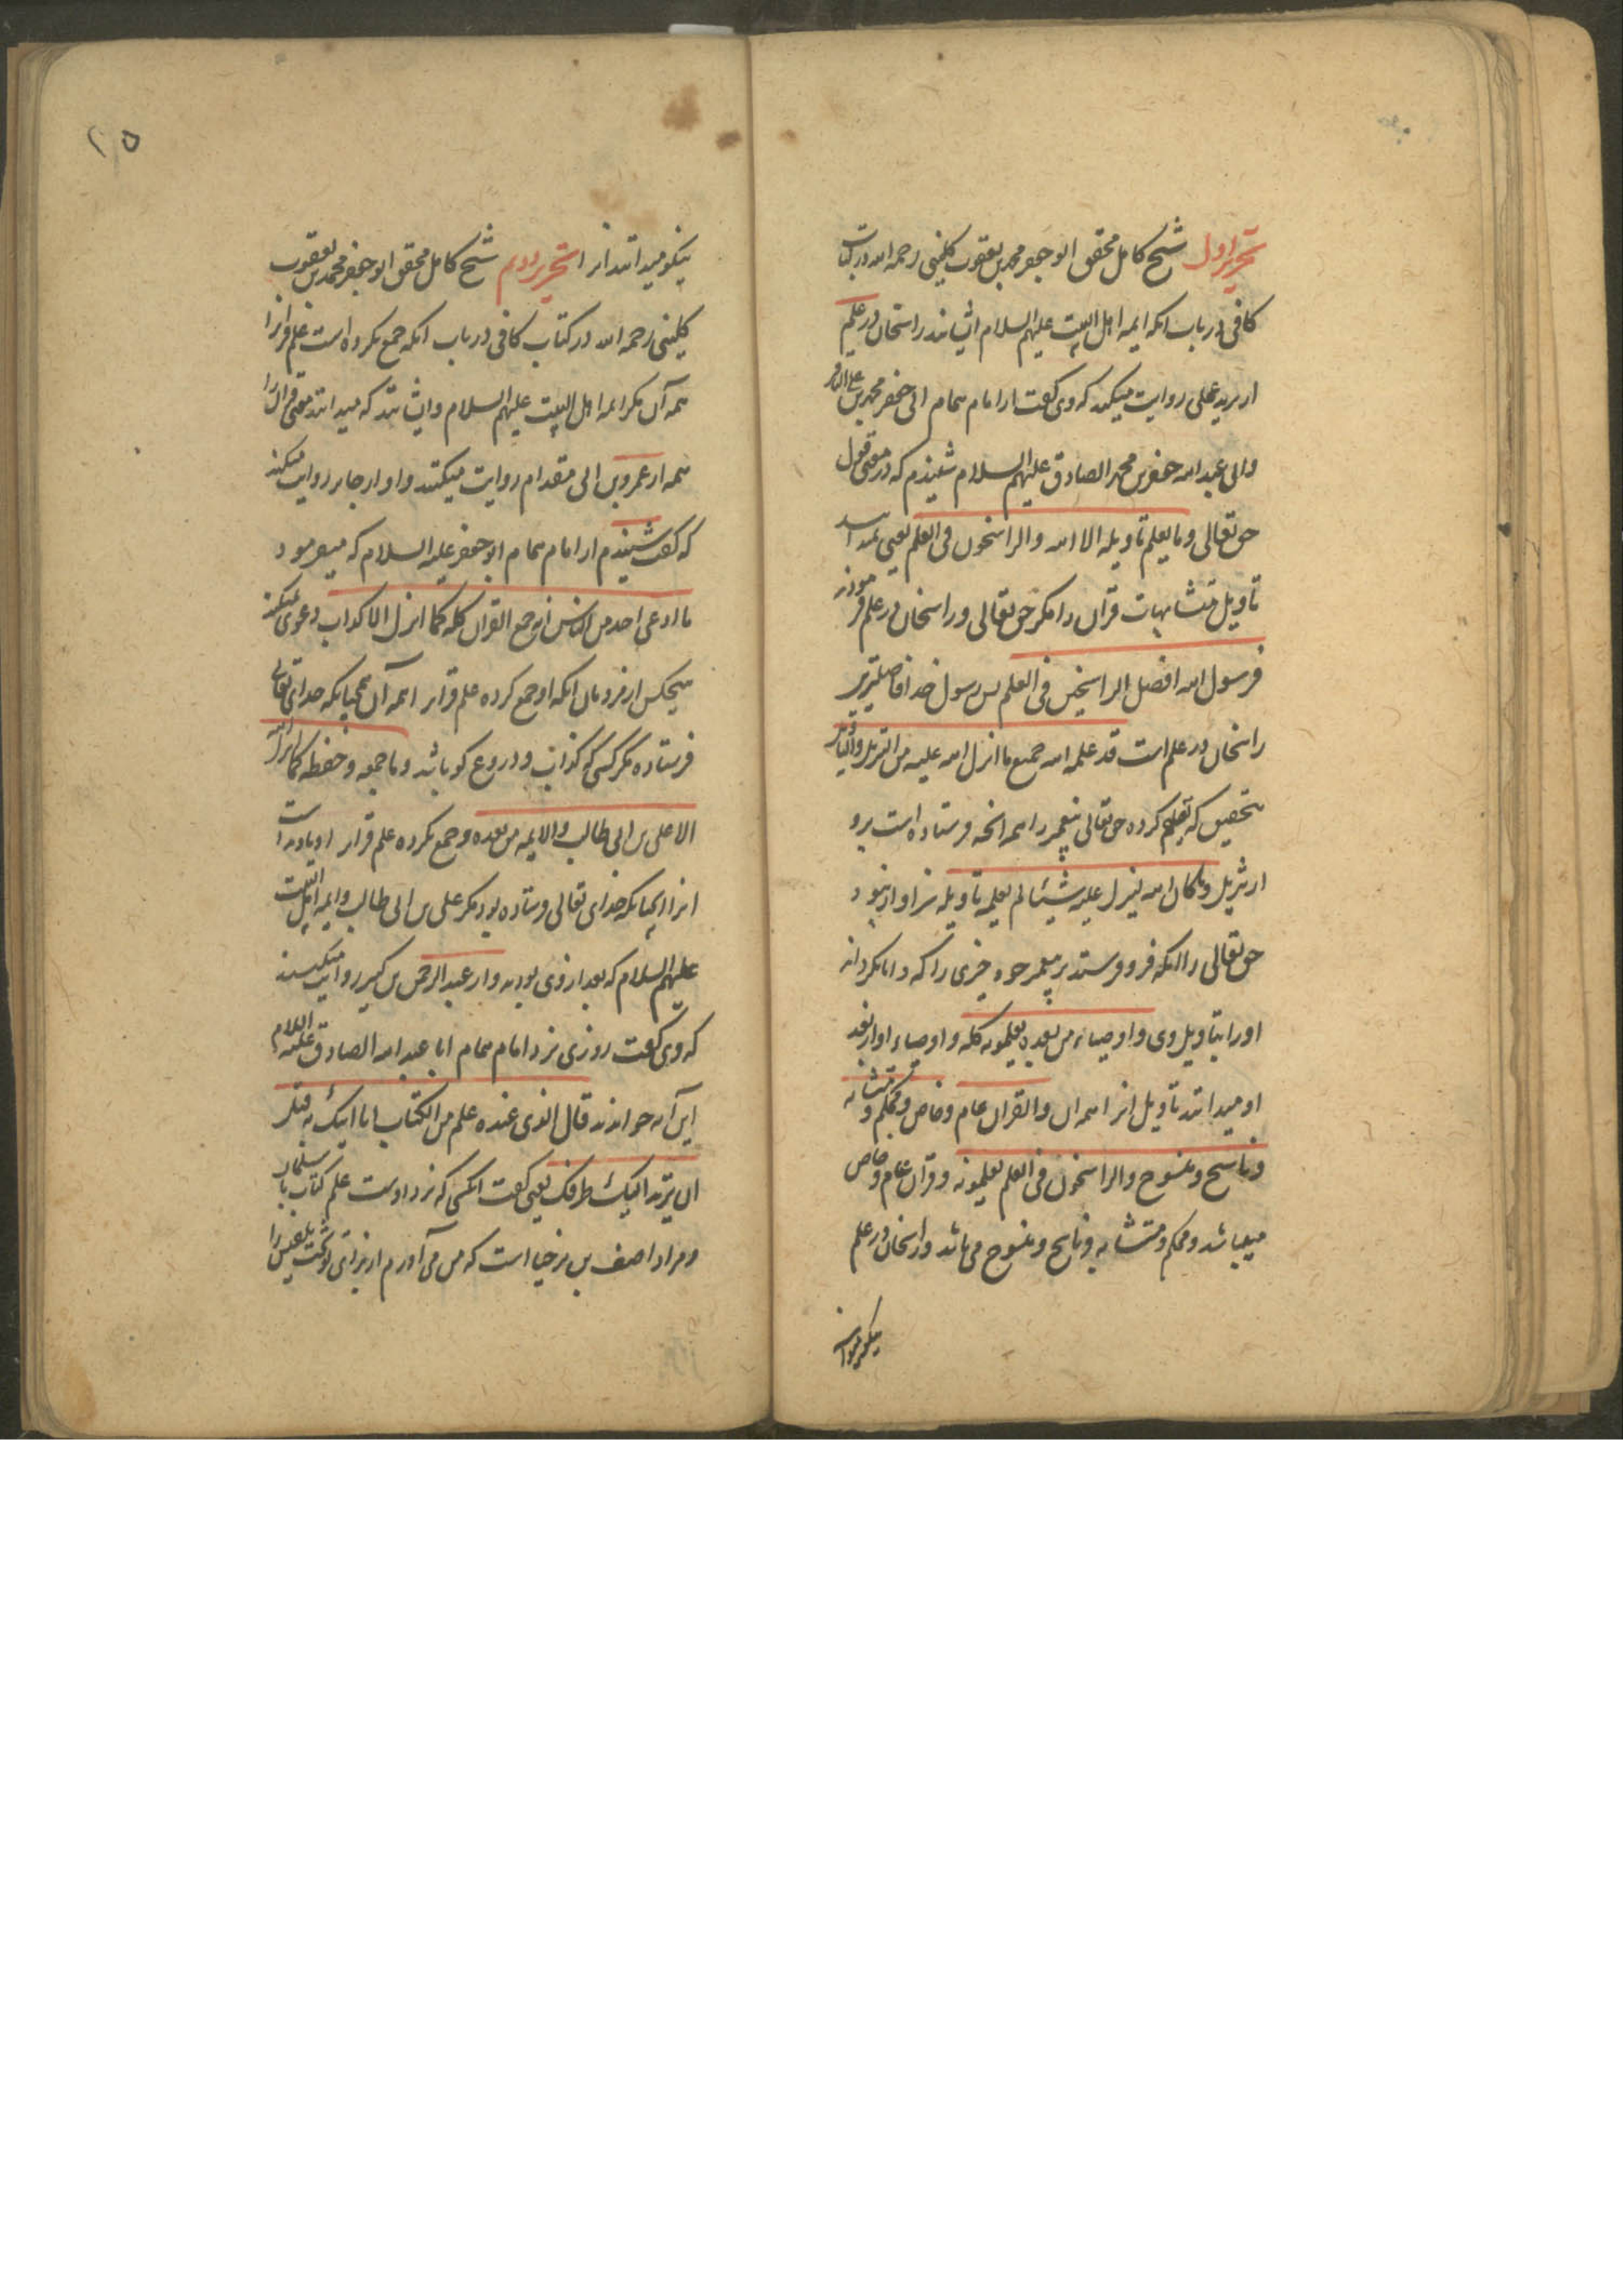 تحریر اول شیخ کامل محقق ابو جعفر محمد بن یعقوب کلینی رحمه الله در کتاب
کافی در باب انکه ایمه اهل البیت علیهم السلام ایشانند راسخان در علم
از برید عجلی روایت میکند که وی کفت از امام همام ابی جعفر محمد بن علی الباقر
وابی عبد الله جعفر بن محمد الصادق علیهم السلام شنیدم که در معنی قول
حق تعالی وما یعلم تاویله الا الله والراسخون فی العلم یعنی نمیداند
تاویل متشابهات قران را مکر حق تعالی و راسخان در علم فرمودند
فرسول الله افضل الراسخین فی العلم پس رسول خدا فاضلترین
راسخان در علم است قد علمه الله جمیع ما انزل الله علیه من التنزیل والتاویل
بتحقیق که تعلیم کرده حق تعالی پیغمبر را همه انچه فرستاده است برو
از تنزیل وما کان الله لینزل علیه شیئا لم یعلمه تاویله سزاوار نبود
حق تعالی را انکه فرو فرستد بر پیغمبر خود چیزی را که دانا نکرداند
او را بتاویل وی و اوصیاءه من بعده یعلمونه کله و اوصیاء او از بعد
او میدانند تاویل انرا همه ان والقران عام وخاص ومحکم ومتشابه
وناسخ ومنسوخ والراسخون فی العلم یعلمونه و قران عام وخاص
میباشد ومحکم ومتشابه وناسخ ومنسوخ می باشد وراسخان در علم
۲۵
نیکو میدانند انرا تحریر دوم شیخ کامل محقق ابو جعفر محمد بن یعقوب
کلینی رحمه الله در کتاب کافی در باب انکه جمع نکرده است علم قرانرا
همه آن مکر ایمه اهل البیت علیهم السلام وایشانند که میدانند معنی قران را
همه از عمرو بن ابی مقدام روایت میکند و او از جابر روایت میکند
که کفت شنیدم از امام همام ابو جعفر علیه السلام که میفرمود
ما ادعی احد من الناس انه جمع القران کله کما انزل الا کذاب دعوی نمیکند
هیچکس از مردمان انکه او جمع کرده علم قران همه آن همچنانکه خدای تعالی
فرستاده مکر کسی که کذاب و دروغ کو باشد وما جمعه وحفظه کما انزل الله
الا علی بن ابی طالب والایمه من بعده وجمع نکرده علم قران و یاد نداشت
انرا همچنانکه خدای تعالی فرستاده بود مکر علی بن ابی طالب وایمه اهل البیت
علیهم السلام که بعد از وی بودند واز عبد الرحمن بن کثیر روایت میکنند
که وی کفت روزی نزد امام همام ابا عبد الله الصادق علیه السلام
این آیه خواندند قال الذی عنده علم من الکتاب انا اتیک به قبل
ان یرتد الیک طرفک یعنی کفت انکسی که نزد اوست علم کتاب با سلیمان
ومراد اصف بن برخیا است که من می آورم از برای تو تخت بلقیس را